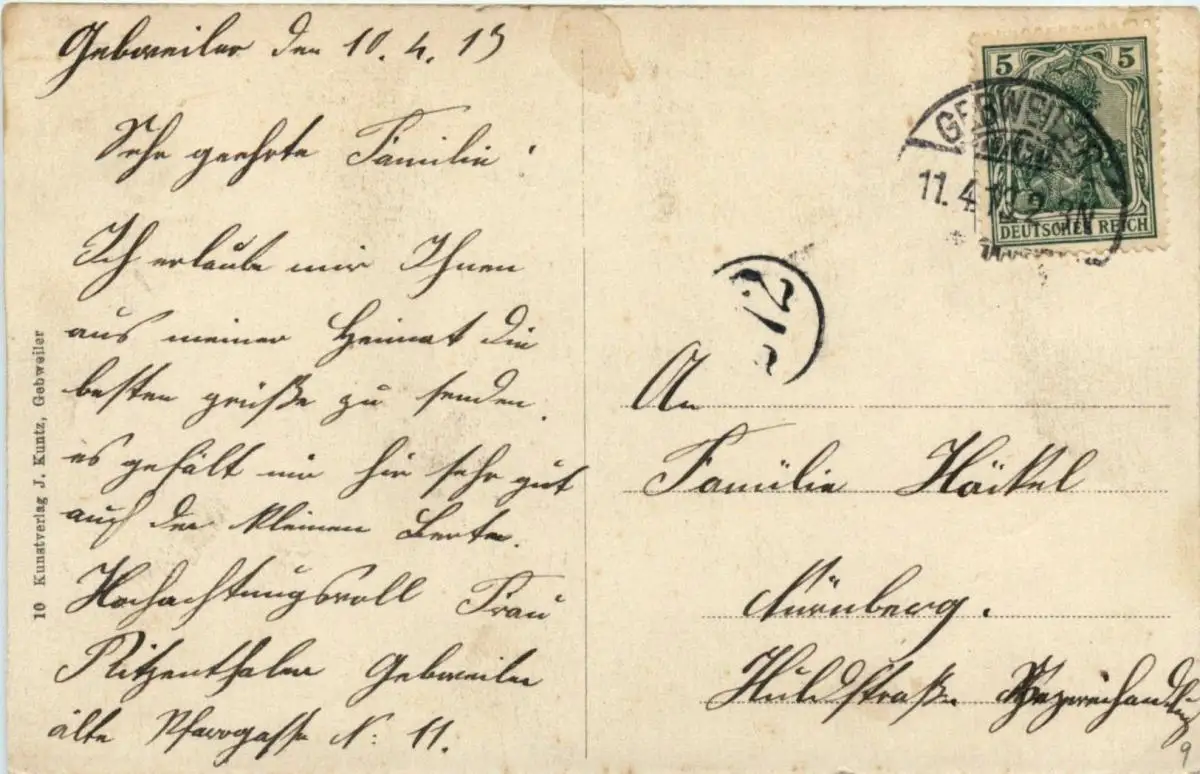 Gebweiler den 10.4.13
Sehr geehrte Familie!
Ich erlaube mir Ihnen
aus meiner Heimat die
besten grüße zu senden.
es gefält mir hir sehr gut
auch der kleinen Berta.
Hochachtungsvoll Frau
Ritzenthaler Gebweiler
alte Pfarrgasse N: 11.
10 Kunstverlag J. Kuntz, Gebweiler
5 5
DEUTSCHES REICH
GEBWEILER
11.4.13
An
Familie Häckel
Nürnberg.
Huldstraße
9